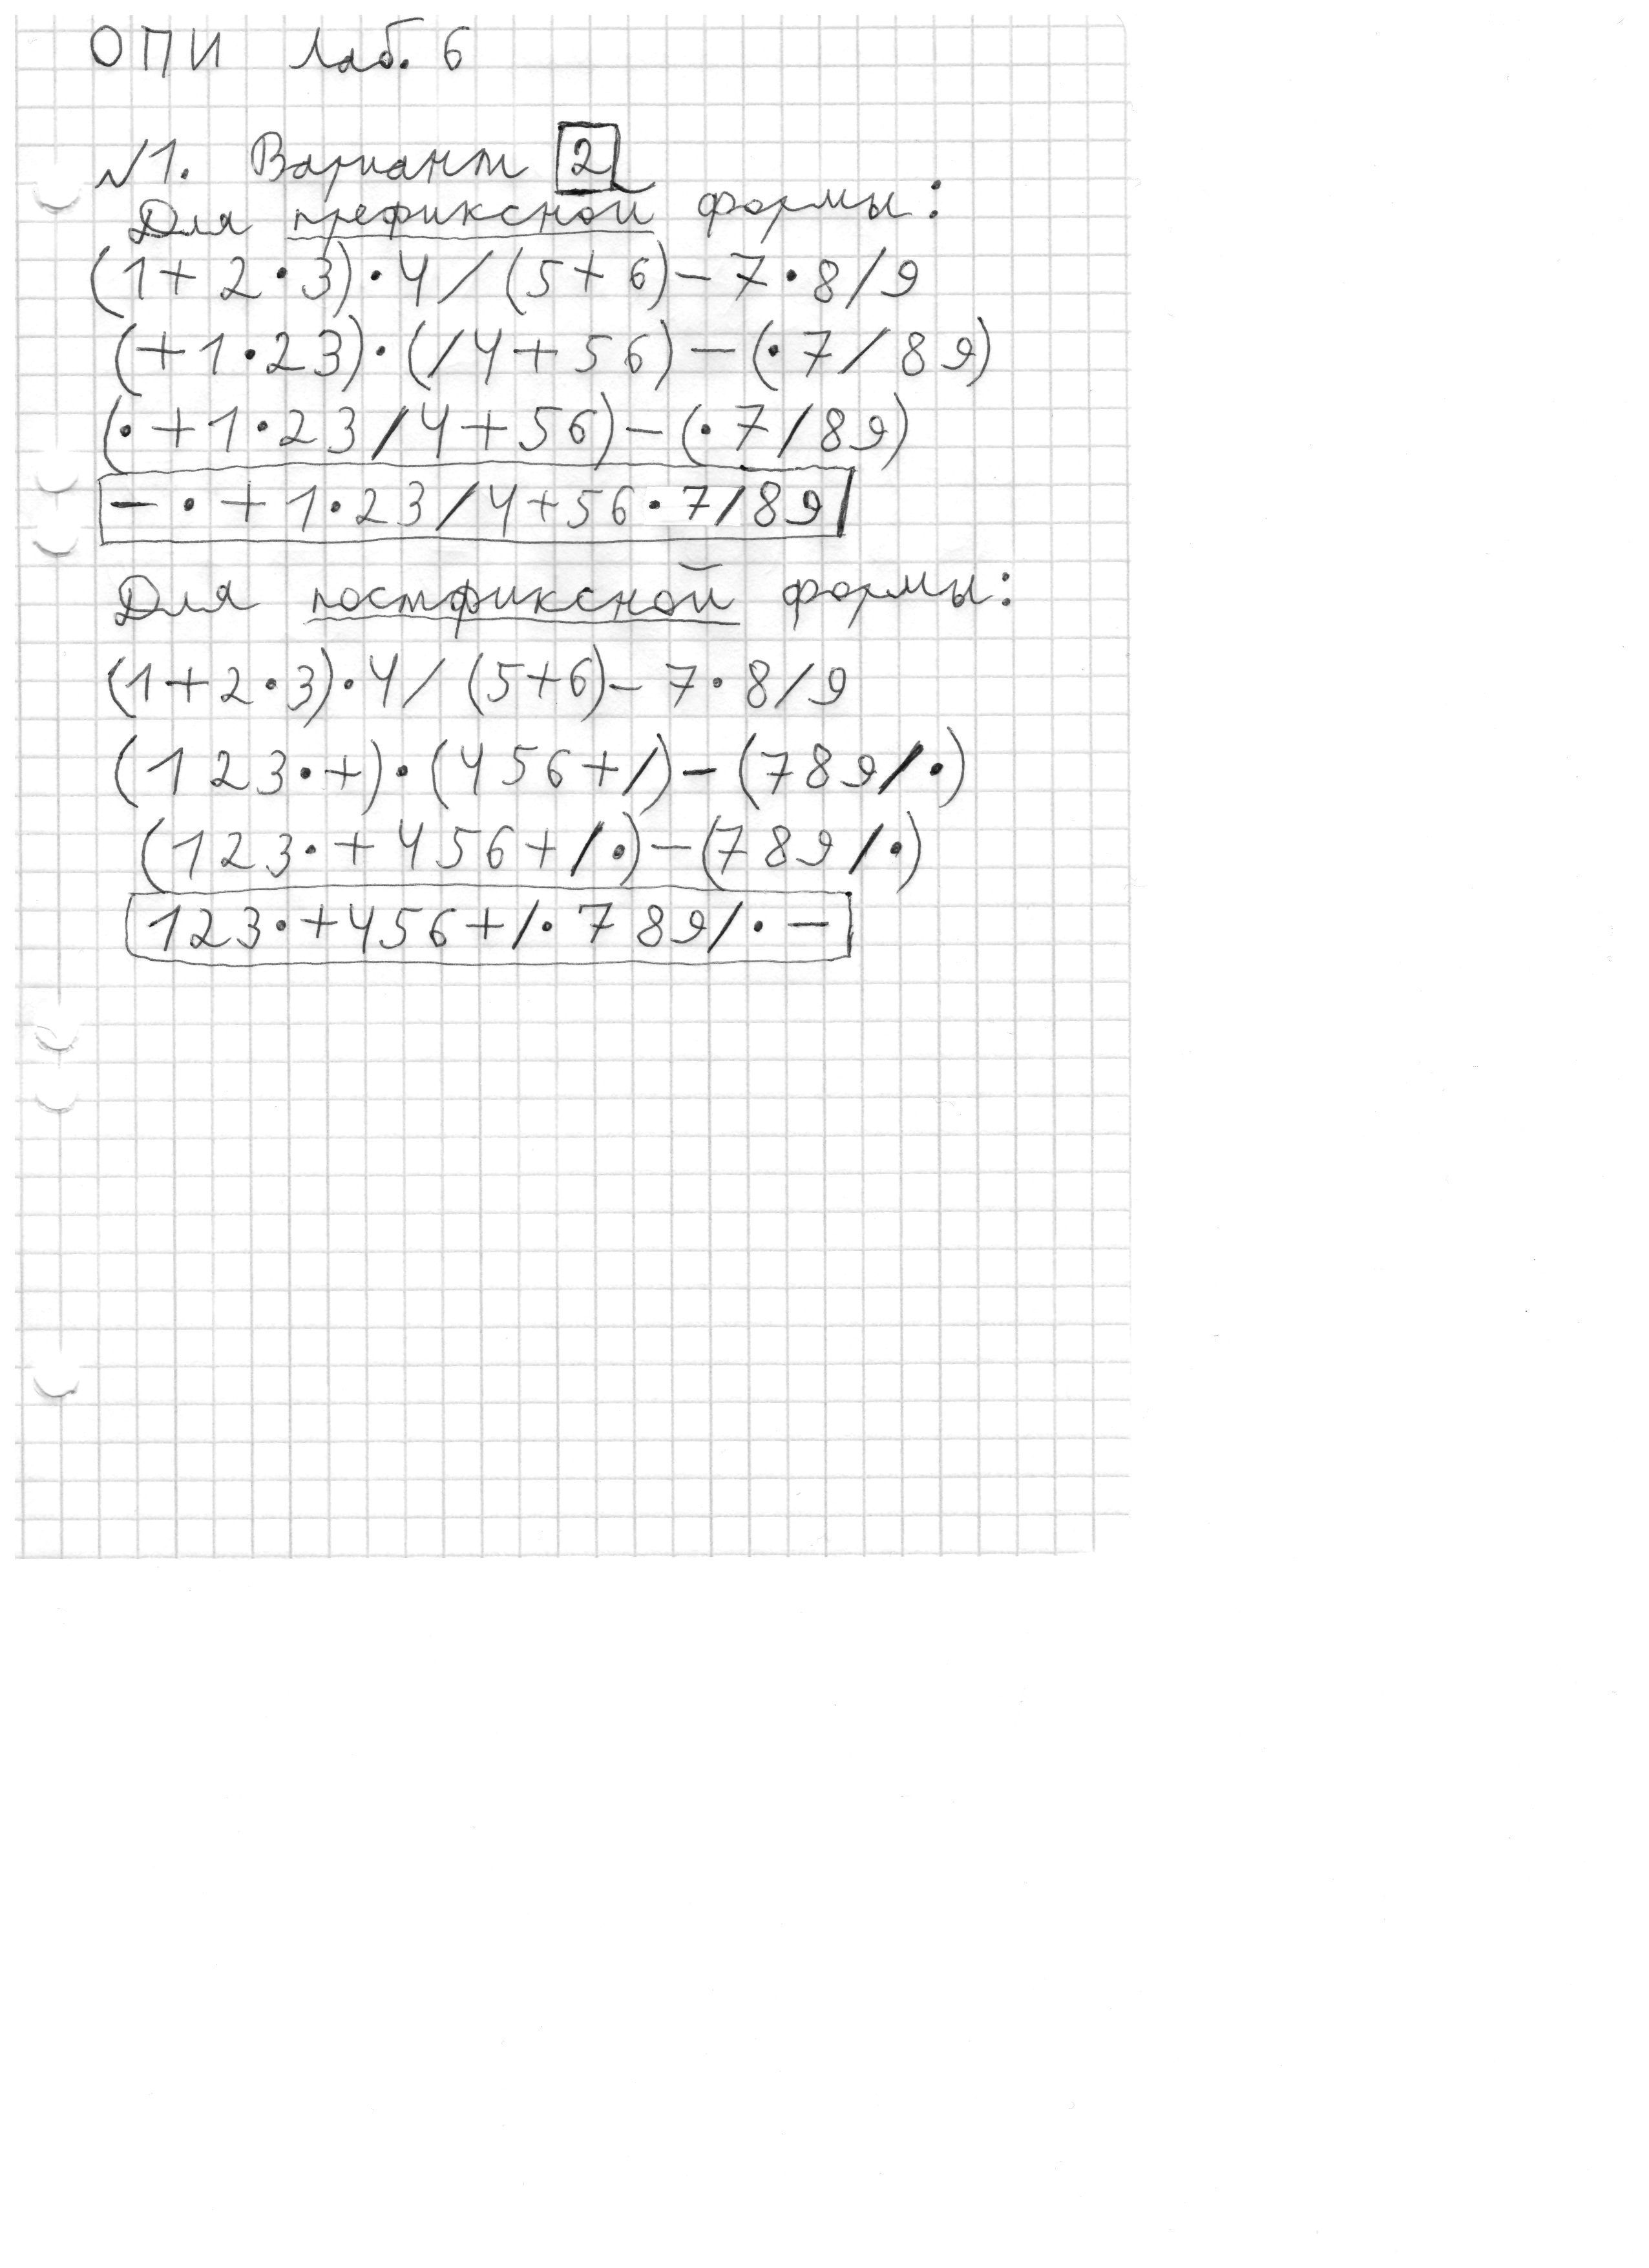 ОПИ Лаб. 6
№1. Вариант 2
Для префиксной формы:
(1+2·3)·4/(5+6)-7·8/9
(+1·23)·(/4+56)-(·7/89)
(·+1·23/4+56)-(·7/89)
-·+1·23/4+56·7/89
Для постфиксной формы:
(1+2·3)·4/(5+6)-7·8/9
(123·+)·(456+/)-(789/·)
(123·+456+/·)-(789/·)
123·+456+/·789/·-